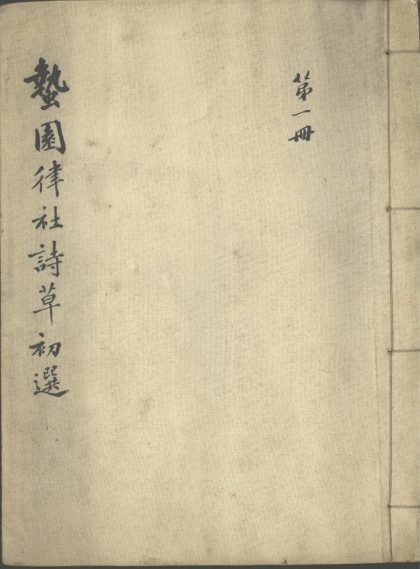 第一冊
蟄園律社詩草初選